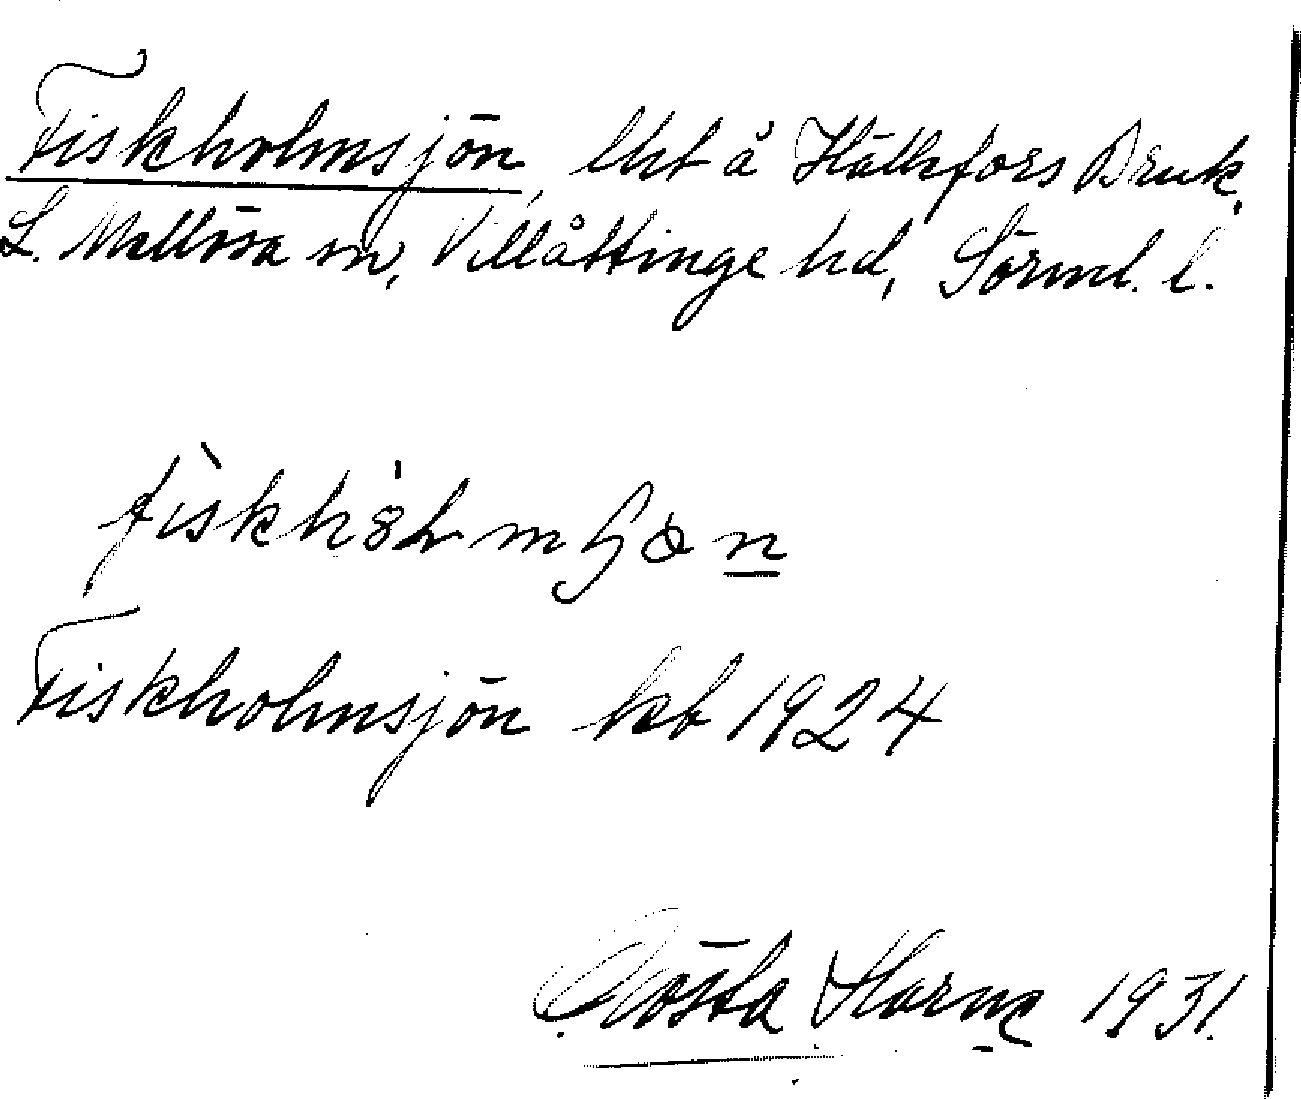 Fiskholmsjön, lht å Hällefors Bruk,
L. Mellösa sn, Villåttinge hd, Sörml. l.
Fiskholmsjön kb 1924
Gösta Harne 1931.